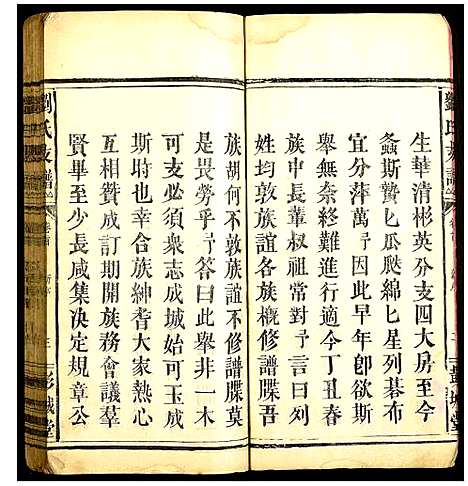 劉氏支譜
生華清彬英分支四大房至今
螽斯贄匕瓜瓞綿匕星列碁布
宜分萍萬千此早年卽欲斯
舉無奈終難進行今丁丑春
族中長輩叔祖常對予言曰
姓均敦族誼各族修譜牒吾
族胡何不敦族誼不修譜牒莫
是畏勞乎予答曰此舉非一木
可支必須衆志成城始可玉成
斯時迎合族紳耆大家熱心
互相贊成訂期開族務會議羣
賢畢至少長咸集決定規章公
劉氏支譜
卷首
彭城堂